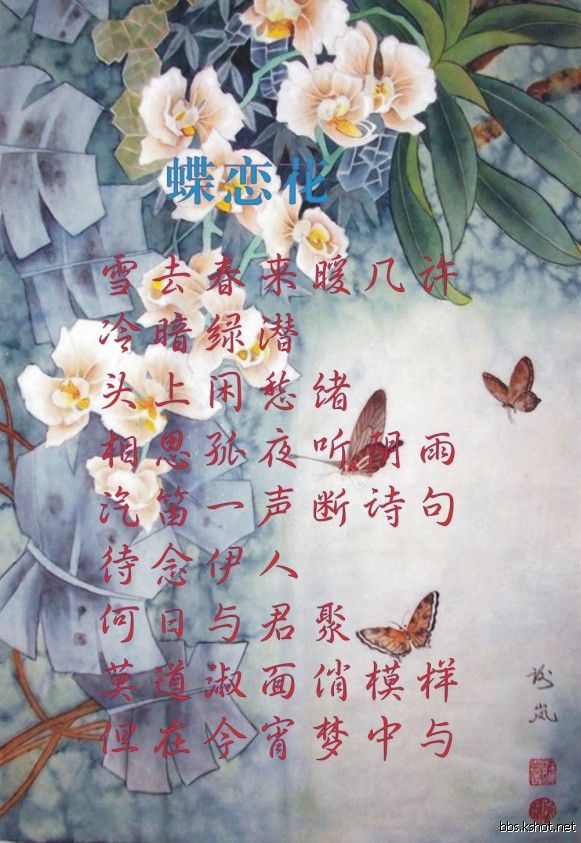 蝶恋花
雪去春来暖几许
冷暗绿潜
头上闲愁绪
相思孤夜听阴雨
汽笛一声断诗句
待念伊人
何日与君聚
莫道淑面俏模样
但在今宵梦中与
岚
bbs.kshot.net